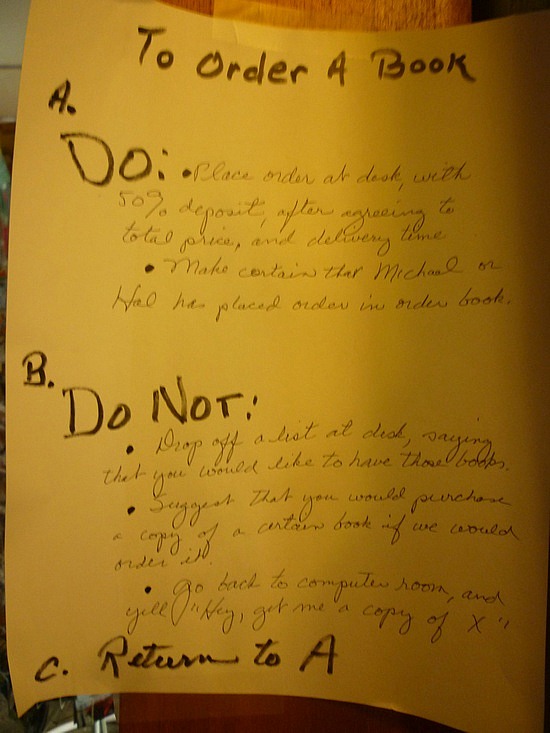 To Order A Book
A.
DO: • Place order at desk, with
50% deposit, after agreeing to
total price, and delivery time
• Make certain that Michael or
Hal has placed order in order book.
B.
Do Not:
• Drop off a list at desk, saying
that you would like to have those books.
• Suggest that you would purchase
a copy of a certain book if we would
order it.
• Go back to computer room, and
yell "Hey, get me a copy of X"
C. Return to A